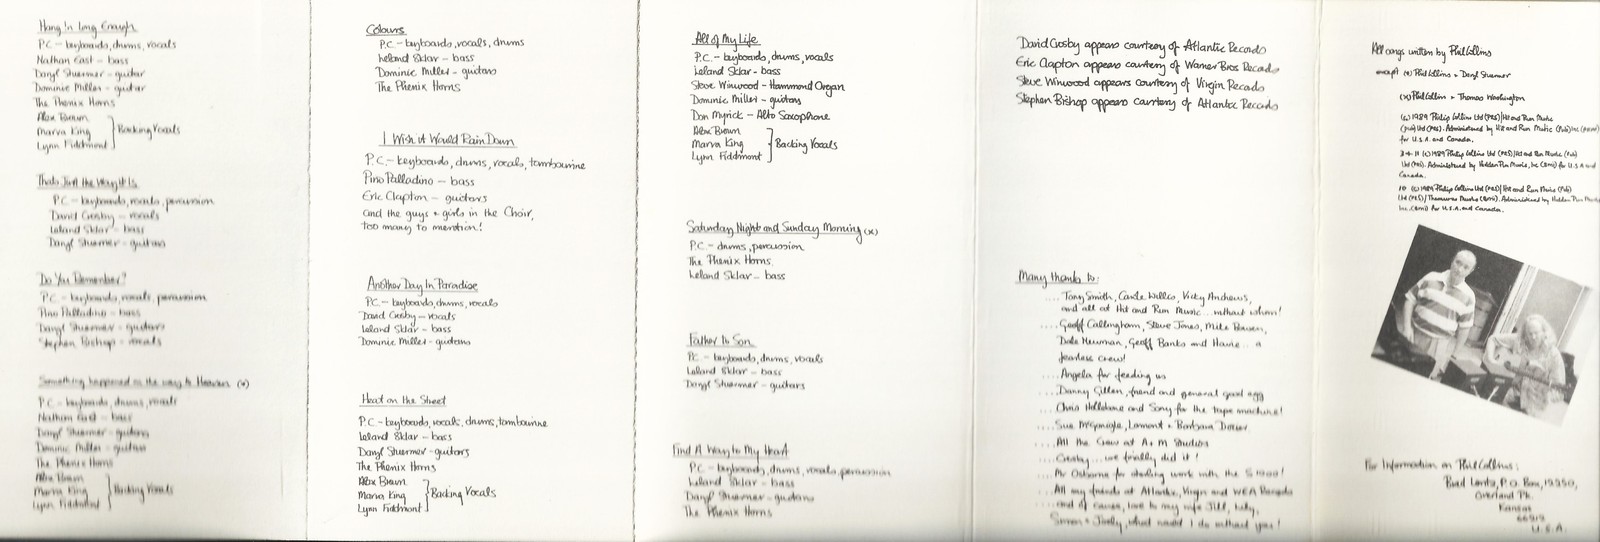 Hang in Long Enough
P.C - keyboards, drums, vocals
Nathan East - bass
Daryl Stuermer - guitar
Dominic Miller - guitar
The Phenix Horns
Alex Brown
Marva King } Backing Vocals
Lynn Fiddmont
Thats Just the Way it Is
P.C - keyboards, vocals, percussion
David Crosby - vocals
Leland Sklar - bass
Daryl Stuermer - guitars
Do You Remember?
P.C - keyboards, vocals, percussion
Pino Palladino - bass
Daryl Stuermer - guitars
Stephen Bishop - vocals
Something happened on the way to Heaven (*)
P.C - keyboards, drums, vocals
Nathan East - bass
Daryl Stuermer - guitars
Dominic Miller - guitars
The Phenix Horns
Alex Brown
Marva King } Backing Vocals
Lynn Fiddmont
Colours
P.C - keyboards, vocals, drums
Leland Sklar - bass
Dominic Miller - guitars
The Phenix Horns
I Wish it Would Rain Down
P.C. - keyboards, drums, vocals, tambourine
Pino Palladino - bass
Eric Clapton - guitars
and the guys + girls in the Choir,
too many to mention!
Another Day In Paradise
P.C - keyboards, drums, vocals
David Crosby - vocals
Leland Sklar - bass
Dominic Miller - guitars
Heat on the Street
P.C - keyboards, vocals, drums, tambourine
Leland Sklar - bass
Daryl Stuermer - guitars
The Phenix Horns
Alex Brown
Marva King } Backing Vocals
Lynn Fiddmont
All of My Life
P.C. - keyboards, drums, vocals
Leland Sklar - bass
Steve Winwood - Hammond Organ
Dominic Miller - guitars
Don Myrick - Alto Saxophone
Alex Brown
Marva King } Backing Vocals
Lynn Fiddmont
Saturday Night and Sunday Morning (x)
P.C - drums, percussion
The Phenix Horns
Leland Sklar - bass
Father to Son
P.C - keyboards, drums, vocals
Leland Sklar - bass
Daryl Stuermer - guitars
Find A Way to My Heart
P.C - keyboards, drums, vocals, percussion
Leland Sklar - bass
Daryl Stuermer - guitars
The Phenix Horns
David Crosby appears courtesy of Atlantic Records
Eric Clapton appears courtesy of Warner Bros Records
Steve Winwood appears courtesy of Virgin Records
Stephen Bishop appears courtesy of Atlantic Records
Many thanks to:
.... Tony Smith, Carole Willis, Vicky Andrews,
and all at Hit and Run Music... without whom!
.... Geoff Callingham, Steve Jones, Mike Bowen,
Dale Newman, Geoff Banks and Howie.. a
fearless crew!
.... Angela for feeding us
.... Danny Gillen, friend and general good egg
.... Chris Hollebone and Sony for the tape machine!
.... Sue McGonigle, Lamont + Barbara Dozier
.... All the Crew at A + M Studios
.... Crosby... we finally did it!
.... Mr Osborne for sterling work with the S 1000!
.... All my friends at Atlantic, Virgin and WEA Records
.... and of course, love to my wife Jill, Lily,
Simon + Joely, what would I do without you!
All songs written by Phil Collins
except (*) Phil Collins + Daryl Stuermer
(x) Phil Collins + Thomas Washington
(c) 1989 Philip Collins Ltd (PRS)/Hit and Run Music
(pub) Ltd (PRS). Administered by Hit and Run Music (Pub) Inc
for U.S.A. and Canada.
3 + 11 (c) 1989 Philip Collins Ltd (PRS)/Hit and Run Music (Pub)
Ltd (PRS). Administered by Hidden Pun Music, Inc (BMI) for U.S.A and
Canada.
10 (c) 1989 Philip Collins Ltd (PRS)/Hit and Run Music (Pub)
Ltd (PRS)/ Music (BMI). Administered by Hidden Pun Music
Inc. (BMI) for U.S.A. and Canada.
For Information on Phil Collins:
Brad Lentz, P.O. Box, 12250,
Overland Pk.
Kansas
66212
U.S.A.